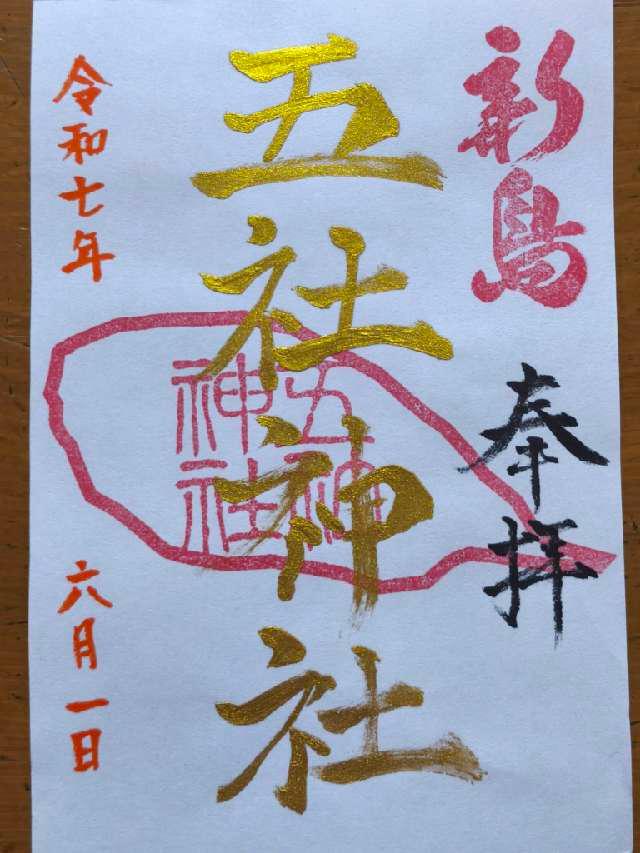 新島
奉拝
五社神社
令和七年
六月一日